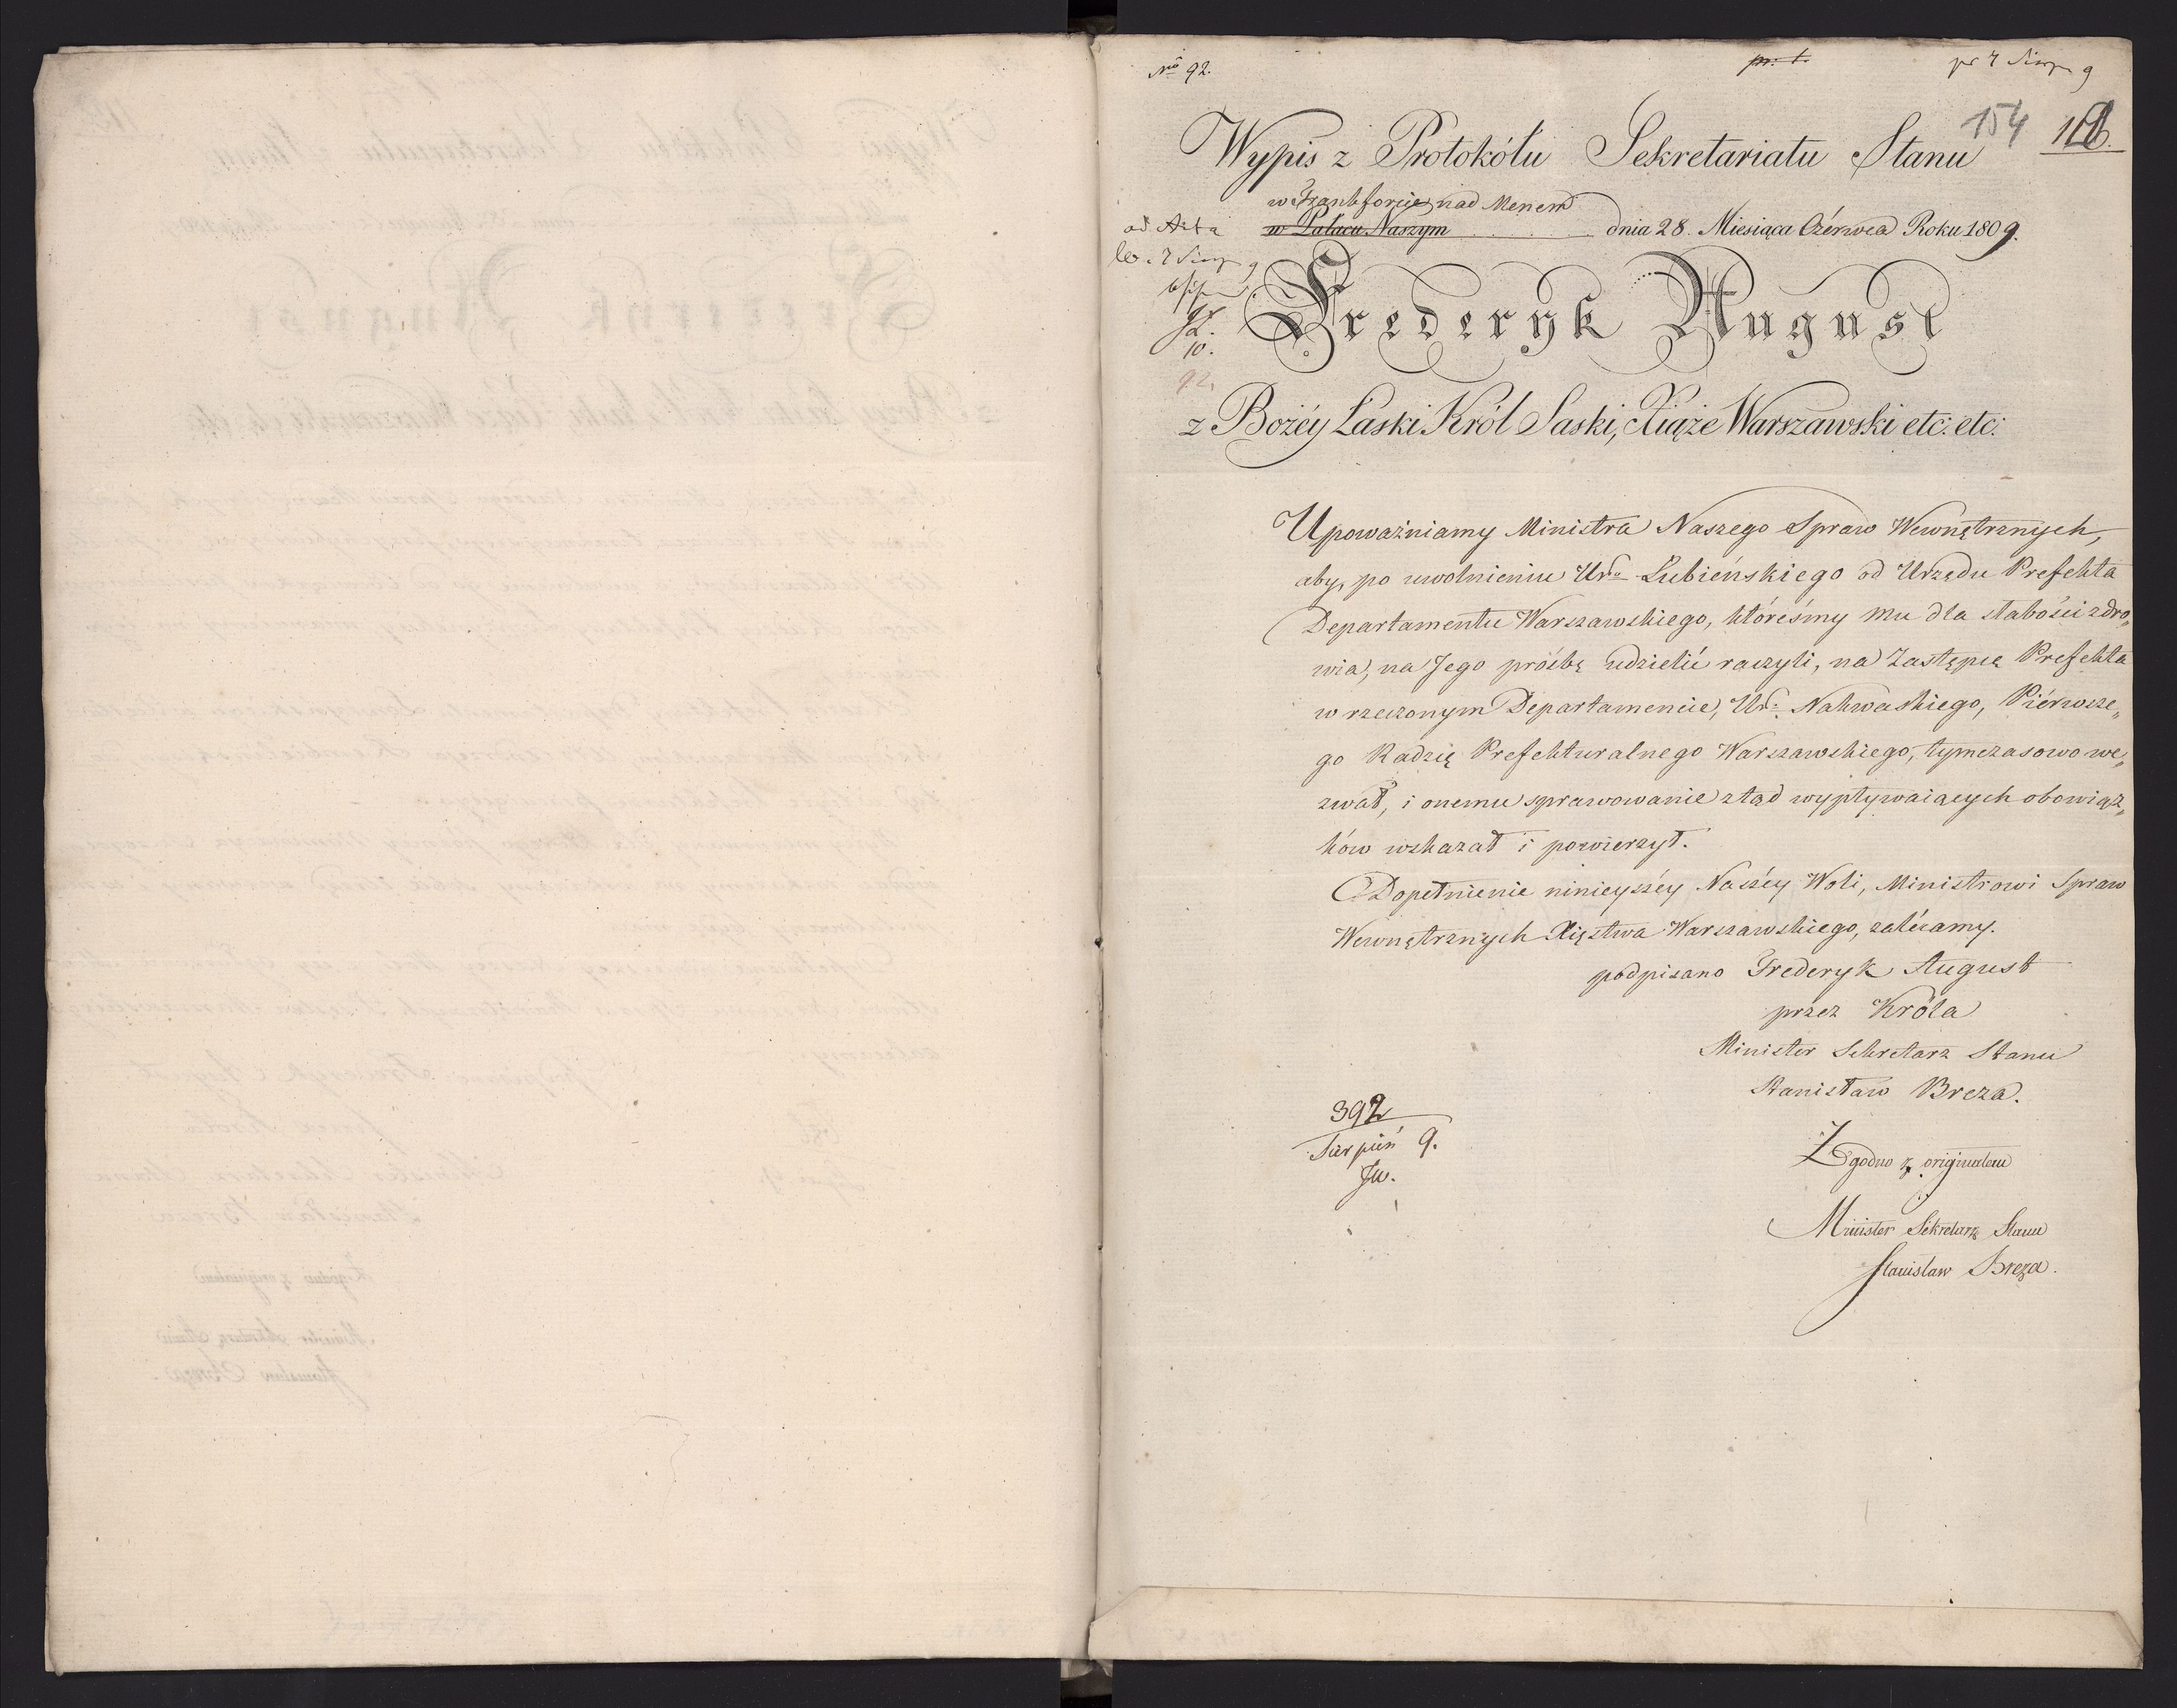 No 92.
pr. 1.
pr 7 Sierp 9
154
Wypis z Protokółu Sekretariatu Stanu
w Frankforcie nad Menem
w Pałacu Naszym dnia 28. Miesiąca Czérwca Roku 1809.
ad Acta
7 Sierp 9
10.
92.
Fryderyk August
z Bożéy Łaski Król Saski, Xiąże Warszawski etc: etc:
Upoważniamy Ministra Naszego Spraw Wewnętrznych,
aby, po uwolnieniu Ur: Łubieńskiego od Urzędu Prefekta
Departamentu Warszawskiego, któreśmy mu dla słabości zdro„
wia, na Jego prośbę udzielić raczyli, na Zastępcę Prefekta
w rzeczonym Departamencie, Ur: Nakwaskiego, Piérwsze„
go Radzcę Prefekturalnego Warszawskiego, tymczasowo we„
zwał, i onemu sprawowanie ztąd wypływaiących obowiąz„
ków wskazał i powierzył.
Dopełnienie ninieyszéy Naszéy Woli, Ministrowi Spraw
Wewnętrznych Xięstwa Warszawskiego, zalécamy.
podpisano Frederyk August
przez Króla
Minister Sekretarz Stanu
Stanisław Breza.
392
Sierpień 9.
Zgodno z originałem
Minister Sekretarz Stanu
Stanisław Breza.